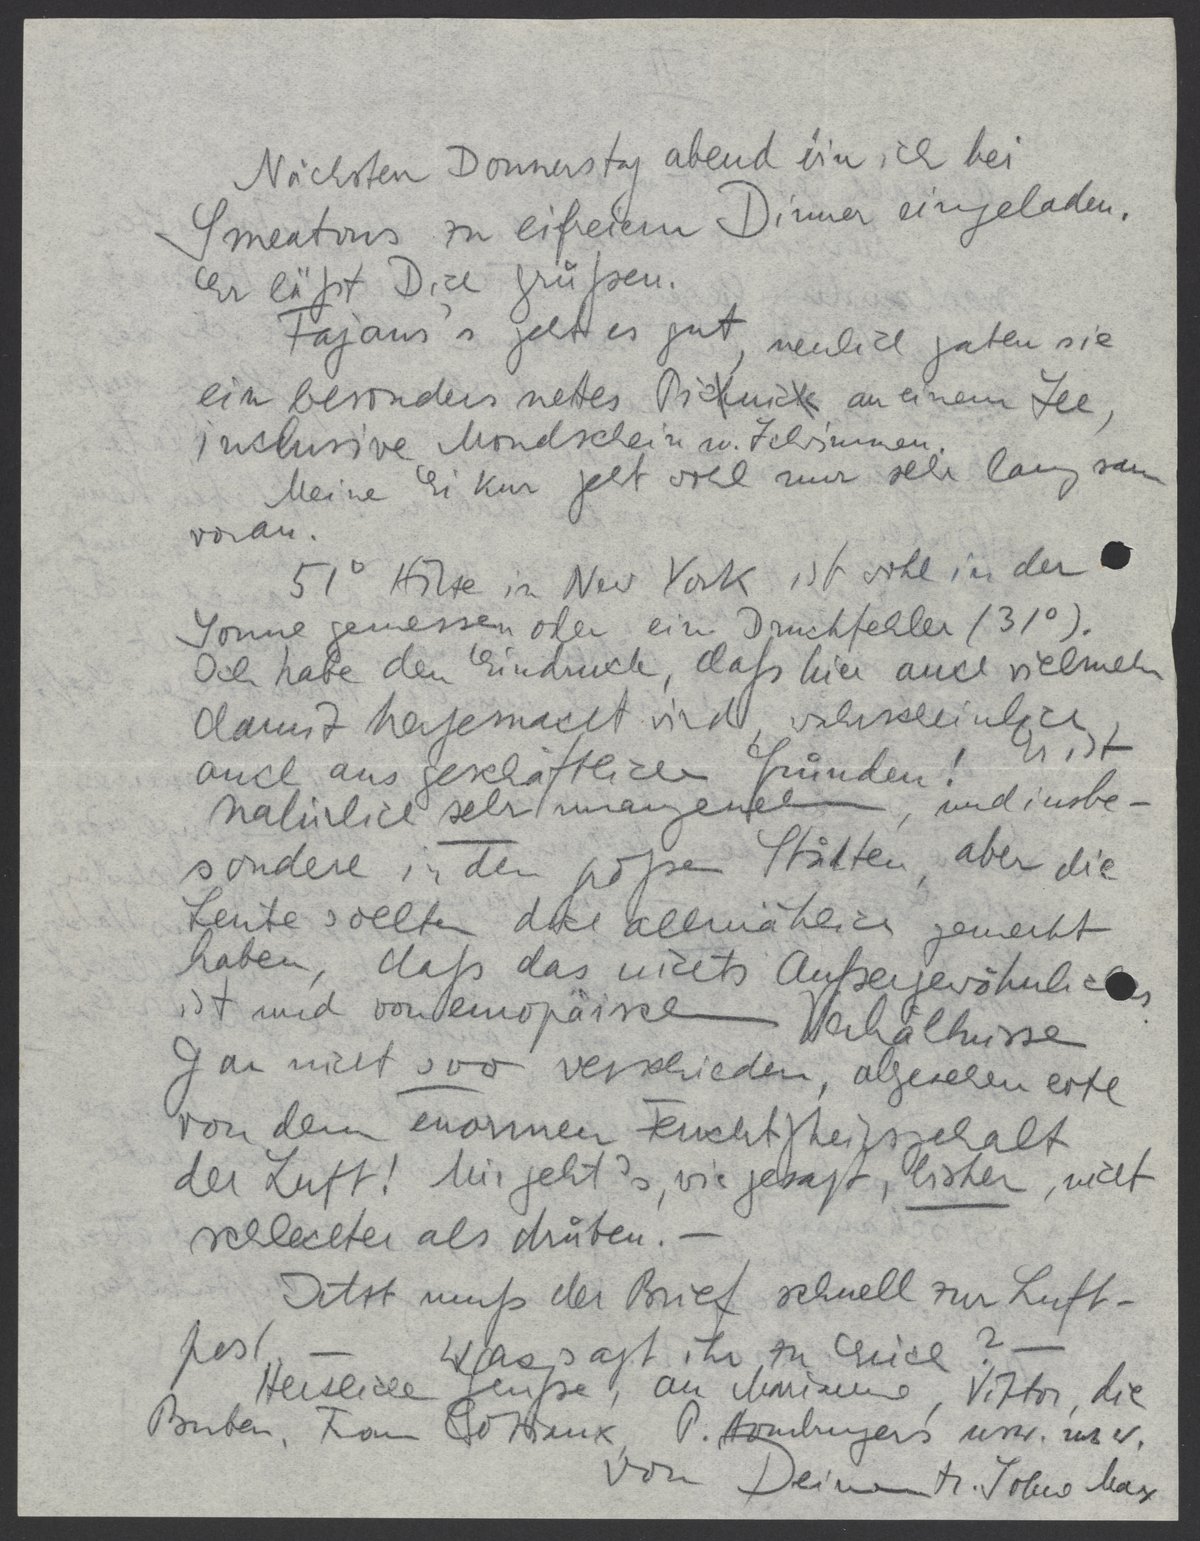 Nächsten Donnerstag abend bin ich bei
Smeatons zu eifreiem Dinner eingeladen.
Er läßt Dich grüßen.
Fajans's geht es gut, neulich gaben sie
ein besonders nettes Picknick an einem See,
inklusive Mondschein u. Schwimmen.
Meine Eikur geht wohl nur sehr langsam
voran.
51° Hitze in New York ist wohl in der
Sonne gemessen oder ein Druckfehler (31°).
Ich habe den Eindruck, daß hier auch vielmehr
damit hergemacht wird, wahrscheinlich
auch aus geschäftlichen Gründen! Er ist
natürlich sehr unangenehm, und insbe-
sondere in den großen Städten, aber die
Leute sollten doch allmählich gemerkt
haben, daß das nichts Außergewöhnliches
ist und von europäischen Verhältnissen
gar nicht sooo verschieden, abgesehen
von dem enormen Feuchtigkeitsgehalt
der Luft! Mir geht's, wie gesagt, bisher, nicht
schlechter als drüben. —
Jetzt muß der Brief schnell zur Luft-
post. — Was sagt ihr zu Erich? —
Herzliche Grüße, an Marianne, Viktor, die
Buben, Frau, P. Homburgers usw. usw.
von Deinem tr. Sohne Max